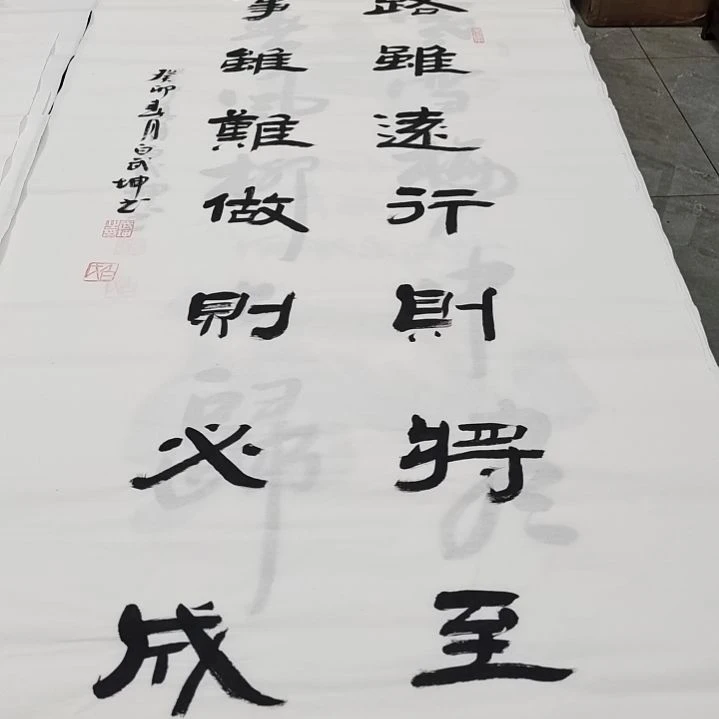 路雖遠行則將至
事雖難做則必成
癸卯春月白武坤书